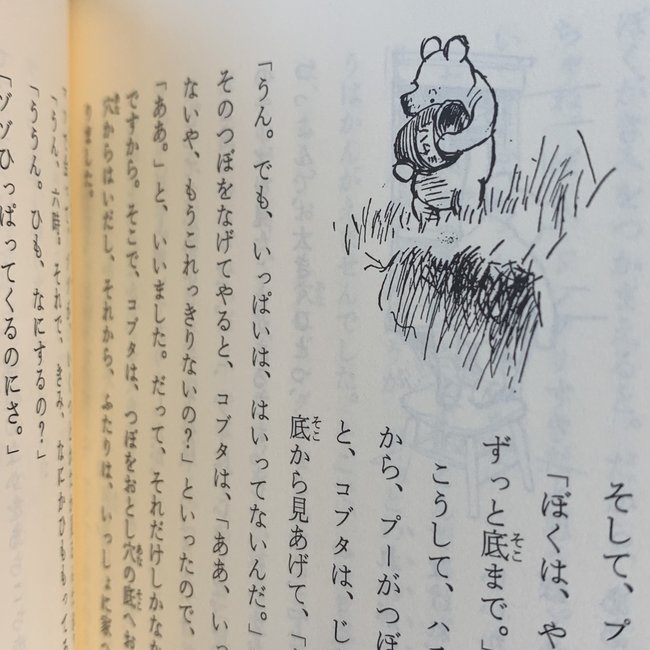 そして、プ
「ぼくは、や
ずっと底まで。」
そこ
こうして、ハ
から、プーがつぼ
と、コブタは、じ
底から見あげて、「
そこ
「うん。でも、いっぱいは、はいってないんだ。」
そのつぼをなげてやると、コブタは、「ああ、いっ
ないや、もうこれっきりないの?」といったので、
「ああ。」と、いいました。だって、それだけしかなか
ですから。そこで、コブタは、つぼをおとし穴の底へお
穴からはいだし、それから、ふたりは、いっしょに家へ
りました。
「うん、六時。それで、きみ、なにかひももって
「ううん。ひも、なにするの?」
「ヅヅひっぱってくるのにさ。」